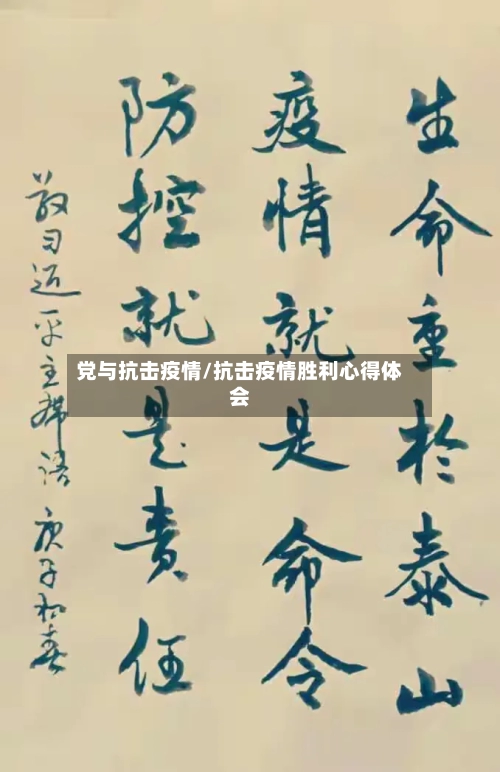 生命重于泰山
疫情就是命令
防控就是责任
敬录习近平主席语 庚子初春
党与抗击疫情/抗击疫情胜利心得体
会